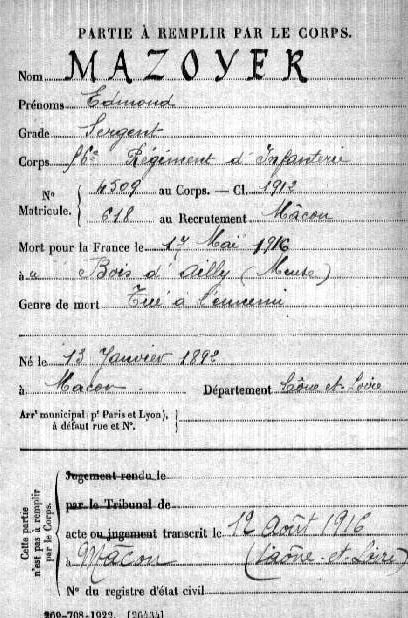 PARTIE À REMPLIR PAR LE CORPS.
Nom MAZOYER
Prénoms Edmond
Grade Sergent
Corps 56e Régiment d'Infanterie
No Matricule. 4509 au Corps. — Cl. 1912
618 au Recrutement Mâcon
Mort pour la France le 17 Mai 1916
à Bois d'Ailly (Meuse)
Genre de mort Tué à l'ennemi
Né le 13 Janvier 1892
à Macon Département Saône et Loire
Arrt municipal (pr Paris et Lyon),
à défaut rue et No.
Cette partie n'est pas à remplir par le Corps.
Jugement rendu le
par le Tribunal de
acte ou jugement transcrit le 12 Août 1916
à Macon (Saône et Loire)
No du registre d'état civil
269-708-1922. [26434]